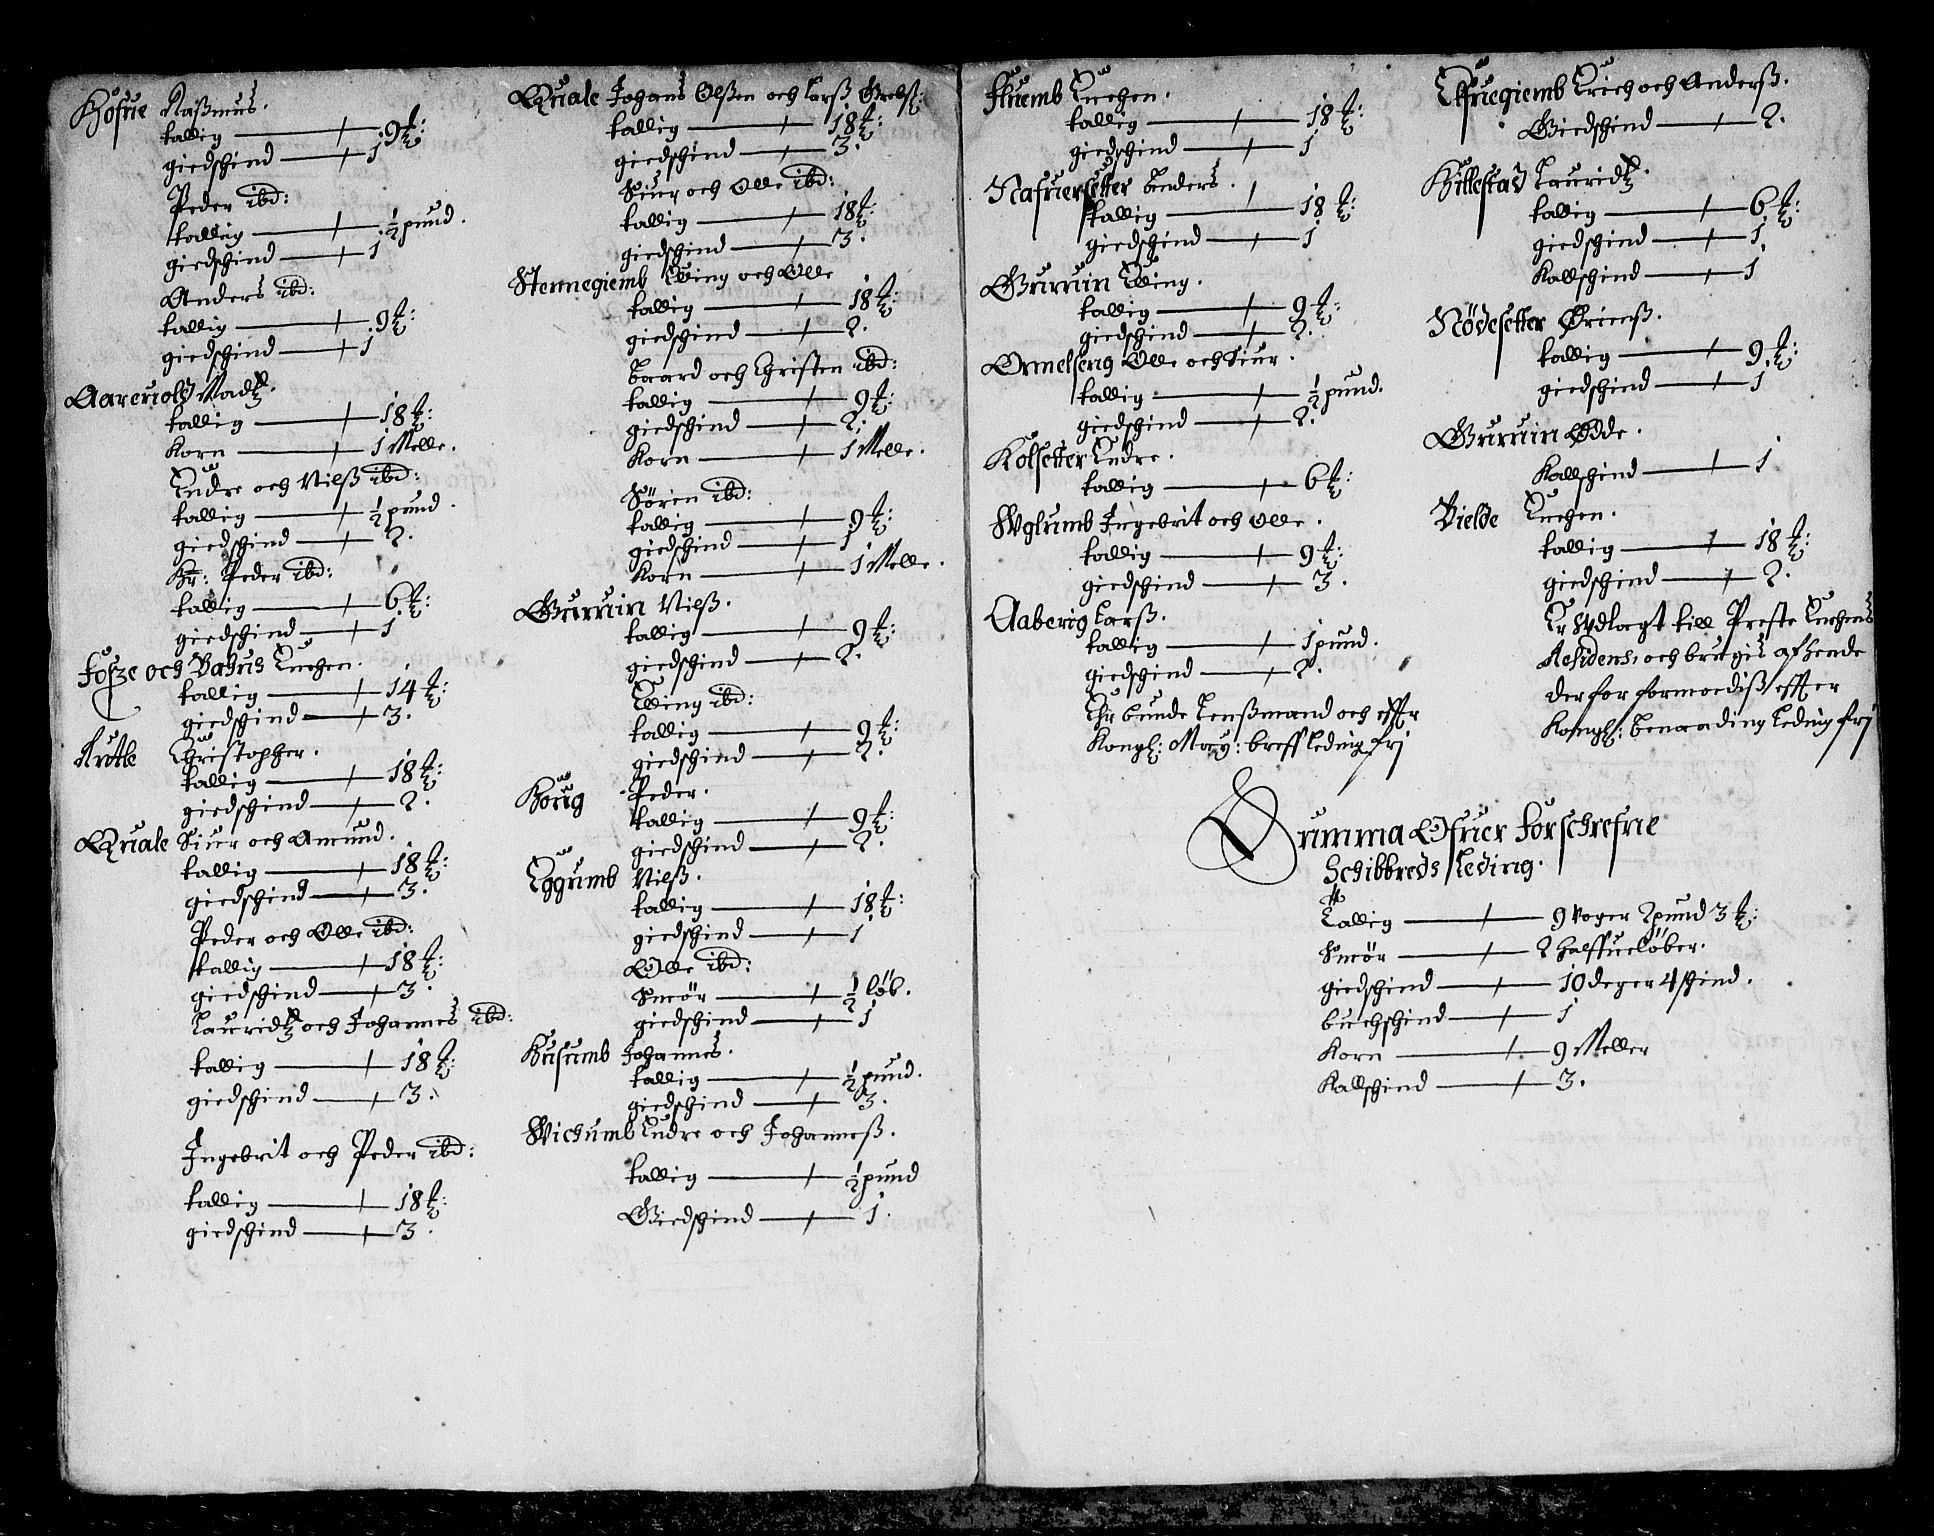 Hofue Rasmus.
tallig — 9 ℔:
giedschind — 1
Peder ibd:
tallig — ½ pund.
giedschind — 1
Anders ibd:
tallig — 9 ℔:
giedschind — 1
Aareuold Madtz.
tallig — 18 ℔:
Korn — 1 Melle.
Endre och Nilß ibd:
tallig — ½ pund.
giedschind — 2.
Hr: Peder ibd:
tallig — 6 ℔:
giedschind — 1
Fosze och Bahus Enchen.
tallig — 14 ℔:
giedschind — 3.
Rutle Christopher.
tallig — 18 ℔:
giedschind — 2.
Quale Siur och Amund.
tallig — 18 ℔:
giedschind — 3.
Peder och Olle ibd:
tallig — 18 ℔:
giedschind — 3.
Lauridtz och Johannes ibd:
tallig — 18 ℔:
giedschind — 3.
Ingebrit och Peder ibd:
tallig — 18 ℔:
giedschind — 3.
Quale Johans Olßen och Larß
tallig — 18 ℔:
giedschind — 3.
Siur och Olle ibd:
tallig — 18 ℔:
giedschind — 3.
Stennegiemb Elling och Olle
tallig — 18 ℔:
giedschind — 2.
Baard och Christen ibd:
tallig — 9 ℔:
giedschind — 2.
Korn — 1 Melle.
Sören ibd:
tallig — 9 ℔:
giedschind — 1
Korn — 1 Melle.
Guruin Nilß.
tallig — 9 ℔:
giedschind — 2.
Elling ibd:
tallig — 9 ℔:
giedschind — 2.
Houg Peder.
tallig — 9 ℔:
giedschind — 2.
Eggumb Nilß.
tallig — 18 ℔:
giedschind — 1
Olle ibd:
Smör — ½ löb.
giedschind — 1
Husumb Johannes.
tallig — ½ pund.
giedschind — 3.
Wichumb Endre och Johanneß.
tallig — ½ pund
Giedschind — 1.
Fluemb Enchen.
tallig — 18 ℔:
giedschind — 1
Nafuersetter Anders.
tallig — 18 ℔:
giedschind — 1
Guruin Elling.
tallig — 9 ℔:
giedschind — 2.
Ormelseng Olle och Siur.
tallig — ½ pund.
giedschind — 2.
Kolsetter Endre.
tallig — 6 ℔:
Wglumb Ingebrit och Olle.
tallig — 9 ℔:
giedschind — 3.
Aaberig Larß.
tallig — 1 pund.
giedschind — 2.
Ehr bunde Lenßmand och effter
Kongl: May: breff leding frj
Elfuegiemb Erich och Anderß.
Giedschind — 2.
Hillestad Lauridtz.
tallig — 6 ℔:
giedschind — 1.
Kallschind — 1
Nödesetter
tallig — 9 ℔:
giedschind — 1
Guruin Odde.
Kallschind — 1
Bielde Enchen.
tallig — 18 ℔:
giedschind — 2.
Er Wdlagt till Preste Enchens
Residens, och brugis af hende
derfor formoediß effter
Kongl: benaading leding frj
Summa Ofuer Forschrefne
Schibbreds Leding.
Tallig — 9 Voger 2 pund 3 ℔:
Smör — 2 halffue löber.
giedschind — 10 deger 4 schind.
buchschind — 1
Korn — 9 Meller
Kallschind — 3.